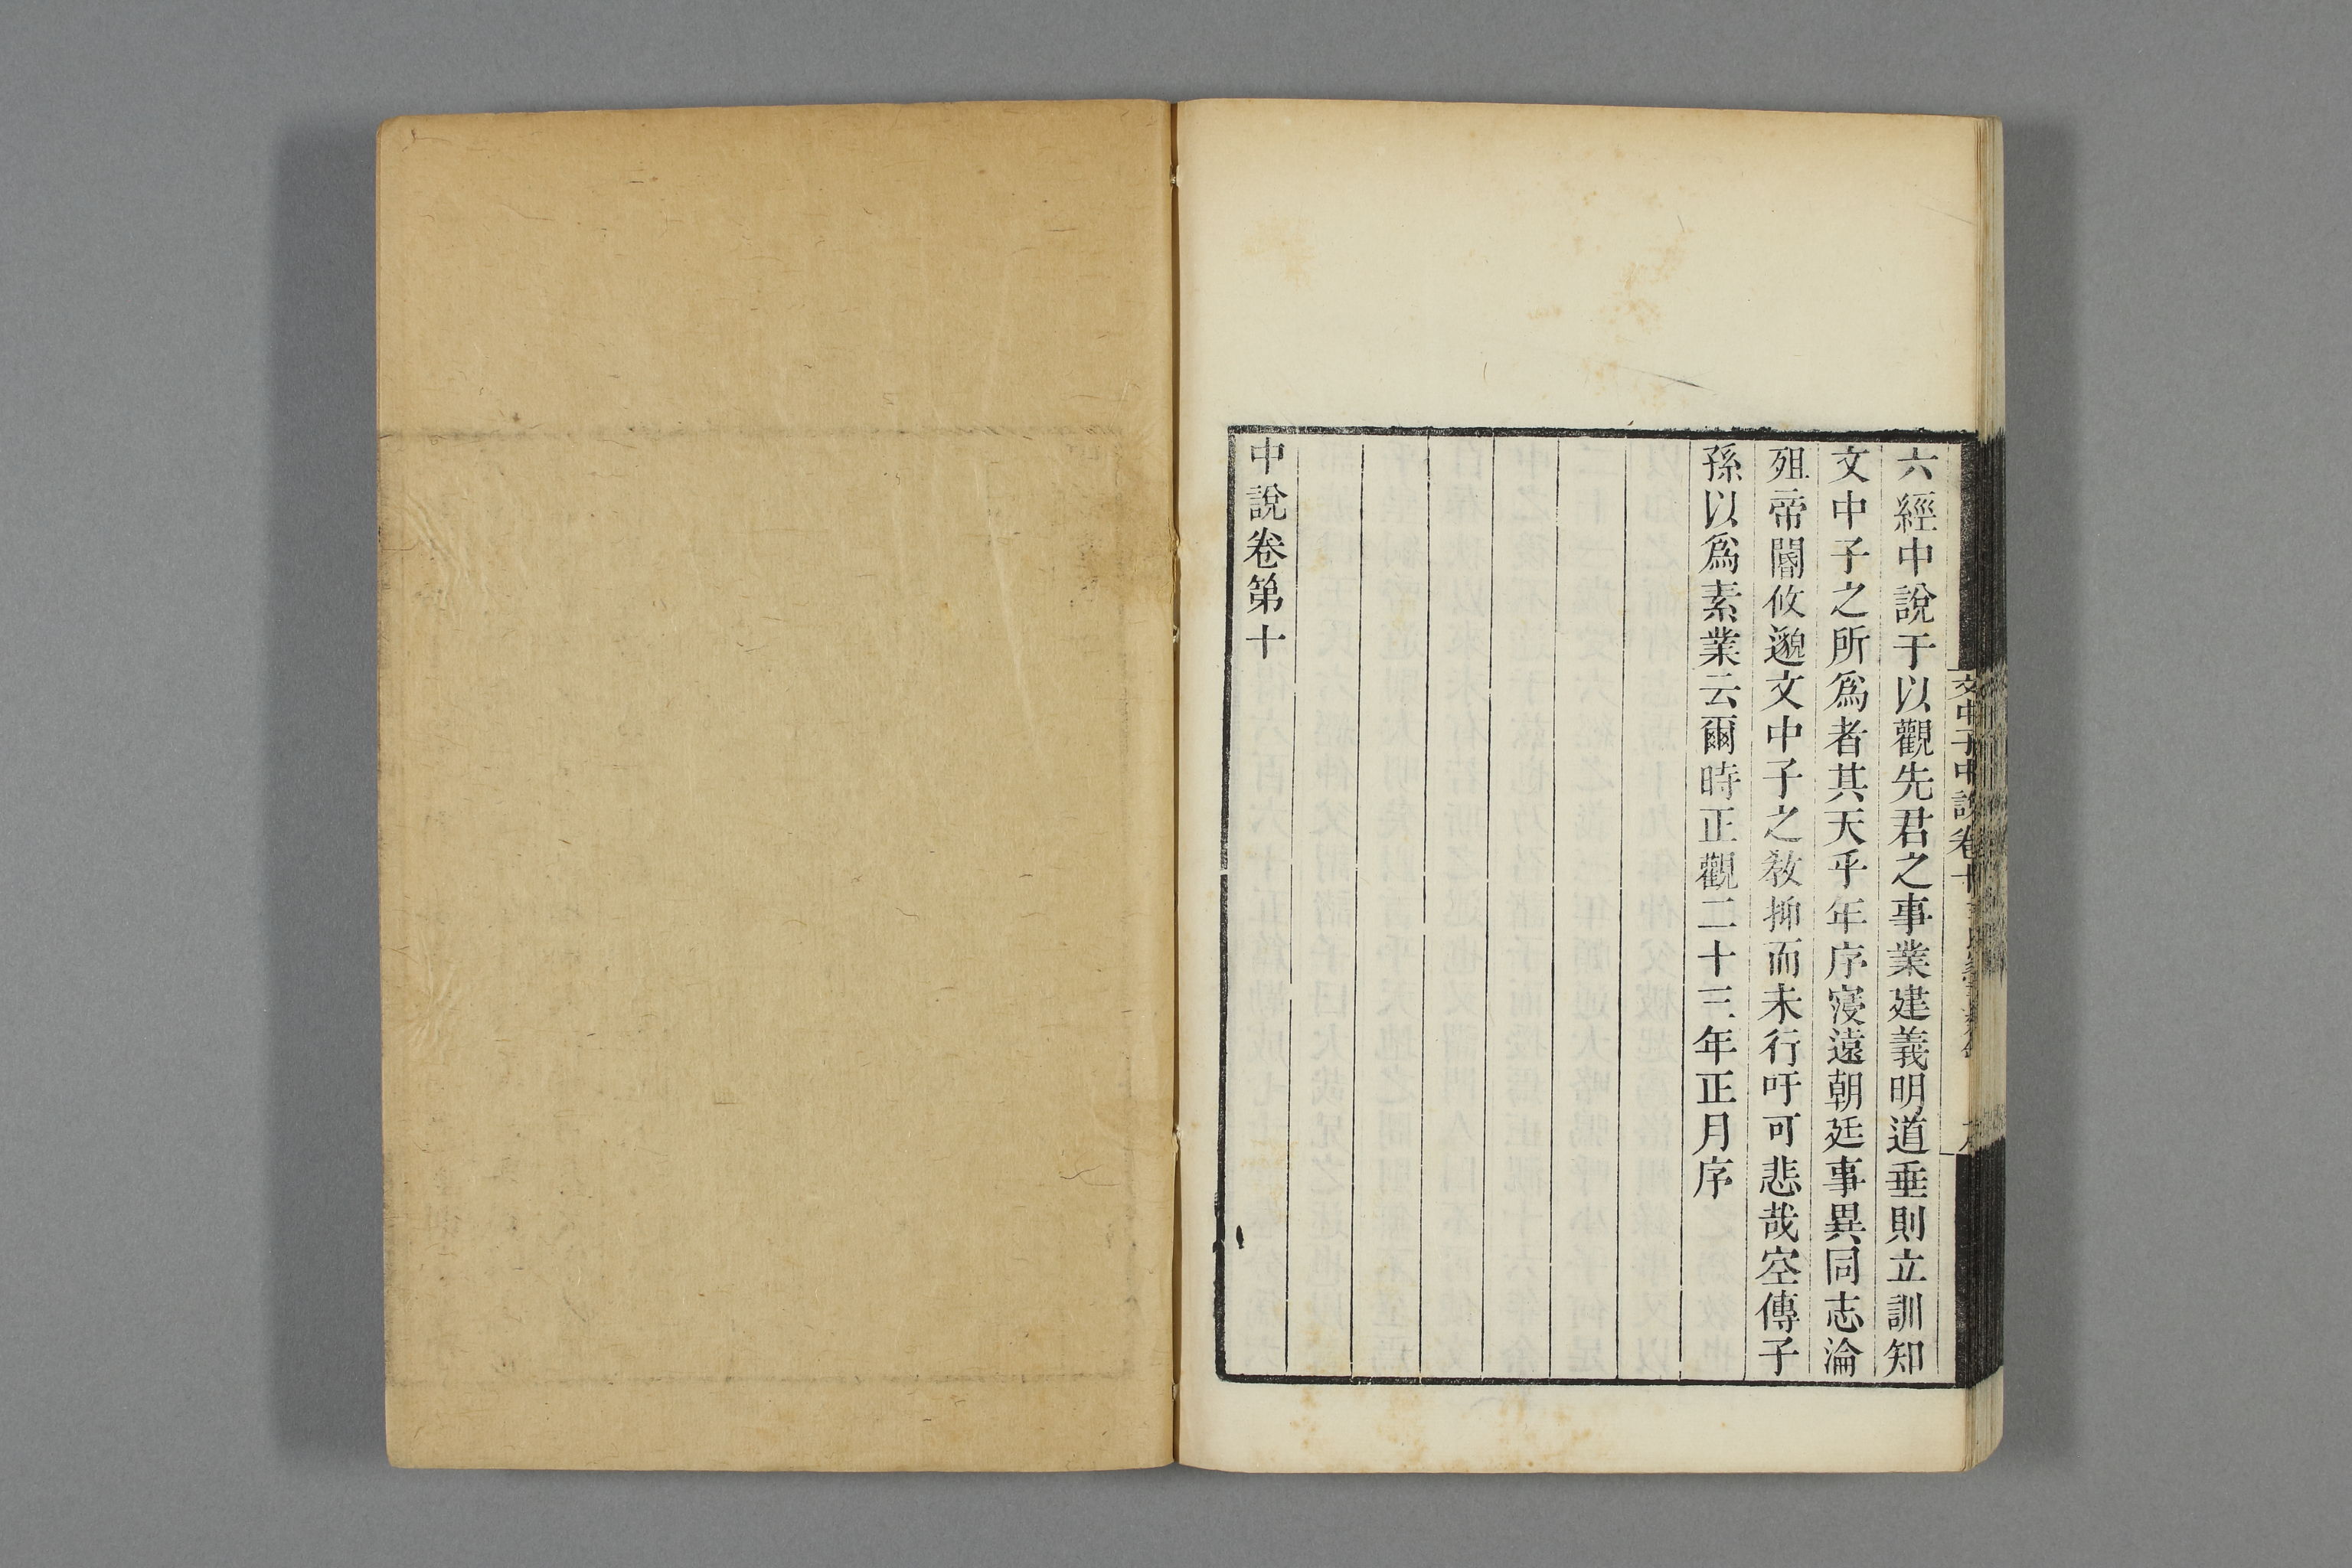 六經中說于以觀先君之事業建義明道垂則立訓知
文中子之所爲者其天乎年序寖遠朝廷事異同志淪
殂帝閽攸邈文中子之敎抑而未行吁可悲哉空傳子
孫以爲素業云爾時正觀二十三年正月序
中說卷第十
文中子中說卷十